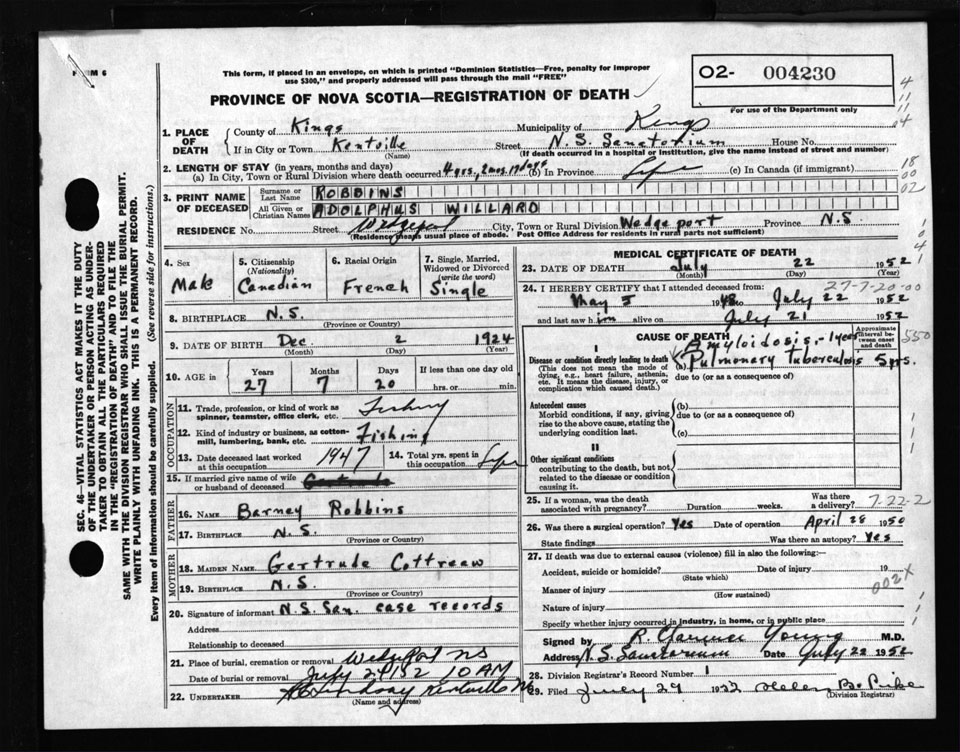 FORM 6
This form, if placed in an envelope, on which is printed "Dominion Statistics—Free, penalty for improper
use $300," and properly addressed will pass through the mail "FREE"
PROVINCE OF NOVA SCOTIA—REGISTRATION OF DEATH
O2- 004230
For use of the Department only
SEC. 46—VITAL STATISTICS ACT MAKES IT THE DUTY
OF THE UNDERTAKER OR PERSON ACTING AS UNDER-
TAKER TO OBTAIN ALL THE PARTICULARS REQUIRED
IN THE "REGISTRATION OF DEATH" AND TO FILE THE
SAME WITH THE DIVISION REGISTRAR WHO SHALL ISSUE THE BURIAL PERMIT.
WRITE PLAINLY WITH UNFADING INK. THIS IS A PERMANENT RECORD.
Every item of information should be carefully supplied. (See reverse side for instructions.)
1. PLACE OF DEATH
County of Kings Municipality of Kings
If in City or Town Kentville Street N.S. Sanatorium House No.
(Name) (If death occurred in a hospital or institution, give the name instead of street and number)
2. LENGTH OF STAY (in years, months and days)
(a) In City, Town or Rural Division where death occurred 4 yrs, 2 mos, 17 days (b) In Province Life (c) In Canada (if immigrant)
3. PRINT NAME OF DECEASED
Surname or Last Name ROBBINS
All Given or Christian Names ADOLPHUS WILLARD
RESIDENCE No. Street City, Town or Rural Division Wedgeport Province N.S.
(Residence means usual place of abode. Post Office Address for residents in rural parts not sufficient)
4. Sex Male
5. Citizenship (Nationality) Canadian
6. Racial Origin French
7. Single, Married, Widowed or Divorced (write the word) Single
8. BIRTHPLACE N.S.
(Province or Country)
9. DATE OF BIRTH Dec. 2 1924
(Month) (Day) (Year)
10. AGE in Years 27 Months 7 Days 20 If less than one day old hrs. or min.
OCCUPATION
11. Trade, profession, or kind of work as spinner, teamster, office clerk, etc. Fishing
12. Kind of industry or business, as cotton-mill, lumbering, bank, etc. Fishing
13. Date deceased last worked at this occupation 1947
14. Total yrs. spent in this occupation Life
15. If married give name of wife or husband of deceased Gertrude
FATHER
16. NAME Barney Robbins
17. BIRTHPLACE N.S.
(Province or Country)
MOTHER
18. MAIDEN NAME Gertrude Cottreau
19. BIRTHPLACE N.S.
(Province or Country)
20. Signature of informant N.S. San. case records
Address
Relationship to deceased
21. Place of burial, cremation or removal Wedgeport NS
Date of burial or removal July 24/52 10 AM
22. UNDERTAKER Lindsay Kentville NS
(Name and address)
MEDICAL CERTIFICATE OF DEATH
23. DATE OF DEATH July 22 1952
(Month) (Day) (Year)
24. I HEREBY CERTIFY that I attended deceased from:
May 5 1948 to July 22 1952
and last saw him alive on July 21 1952
27-7-20-00
CAUSE OF DEATH
Approximate interval between onset and death
I
Disease or condition directly leading to death
(This does not mean the mode of dying, e.g., heart failure, asthenia, etc. It means the disease, injury, or complication which caused death.)
Amyloidosis - 1 year
(a) Pulmonary Tuberculosis 5 yrs.
due to (or as a consequence of)
550
Antecedent causes
Morbid conditions, if any, giving rise to the above cause, stating the underlying condition last.
(b)
due to (or as a consequence of)
(c)
II
Other significant conditions
contributing to the death, but not related to the disease or condition causing it.
25. If a woman, was the death associated with pregnancy? Duration weeks. Was there a delivery?
7-22-2
26. Was there a surgical operation? Yes Date of operation April 28 1950
State findings Was there an autopsy? Yes
27. If death was due to external causes (violence) fill in also the following:—
Accident, suicide or homicide? Date of injury 19
(State which)
002X
Manner of injury
(How sustained)
Nature of injury
Specify whether injury occurred in industry, in home, or in public place
Signed by R. Clarence Young M.D.
Address N.S. Sanatorium Date July 22 1952
28. Division Registrar's Record Number 1
29. Filed July 29 1952 Helen B. Pike
(Division Registrar)